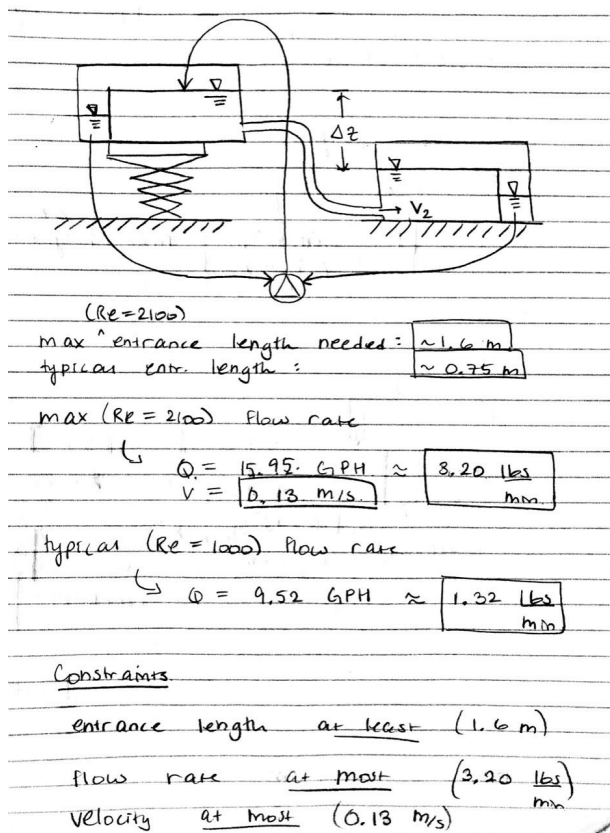 Δz
V₂
(Re=2100)
max ^ entrance length needed: ~1.6 m
typical entr. length : ~ 0.75 m
max (Re = 2100) flow rate
Q = 15.95 GPH ≈ 3.20 lbs/min
V = 0.13 m/s
typical (Re = 1000) flow rate
Q = 9.52 GPH ≈ 1.32 lbs/min
Constraints
entrance length at least (1.6 m)
flow rate at most (3.20 lbs/min)
velocity at most (0.13 m/s)